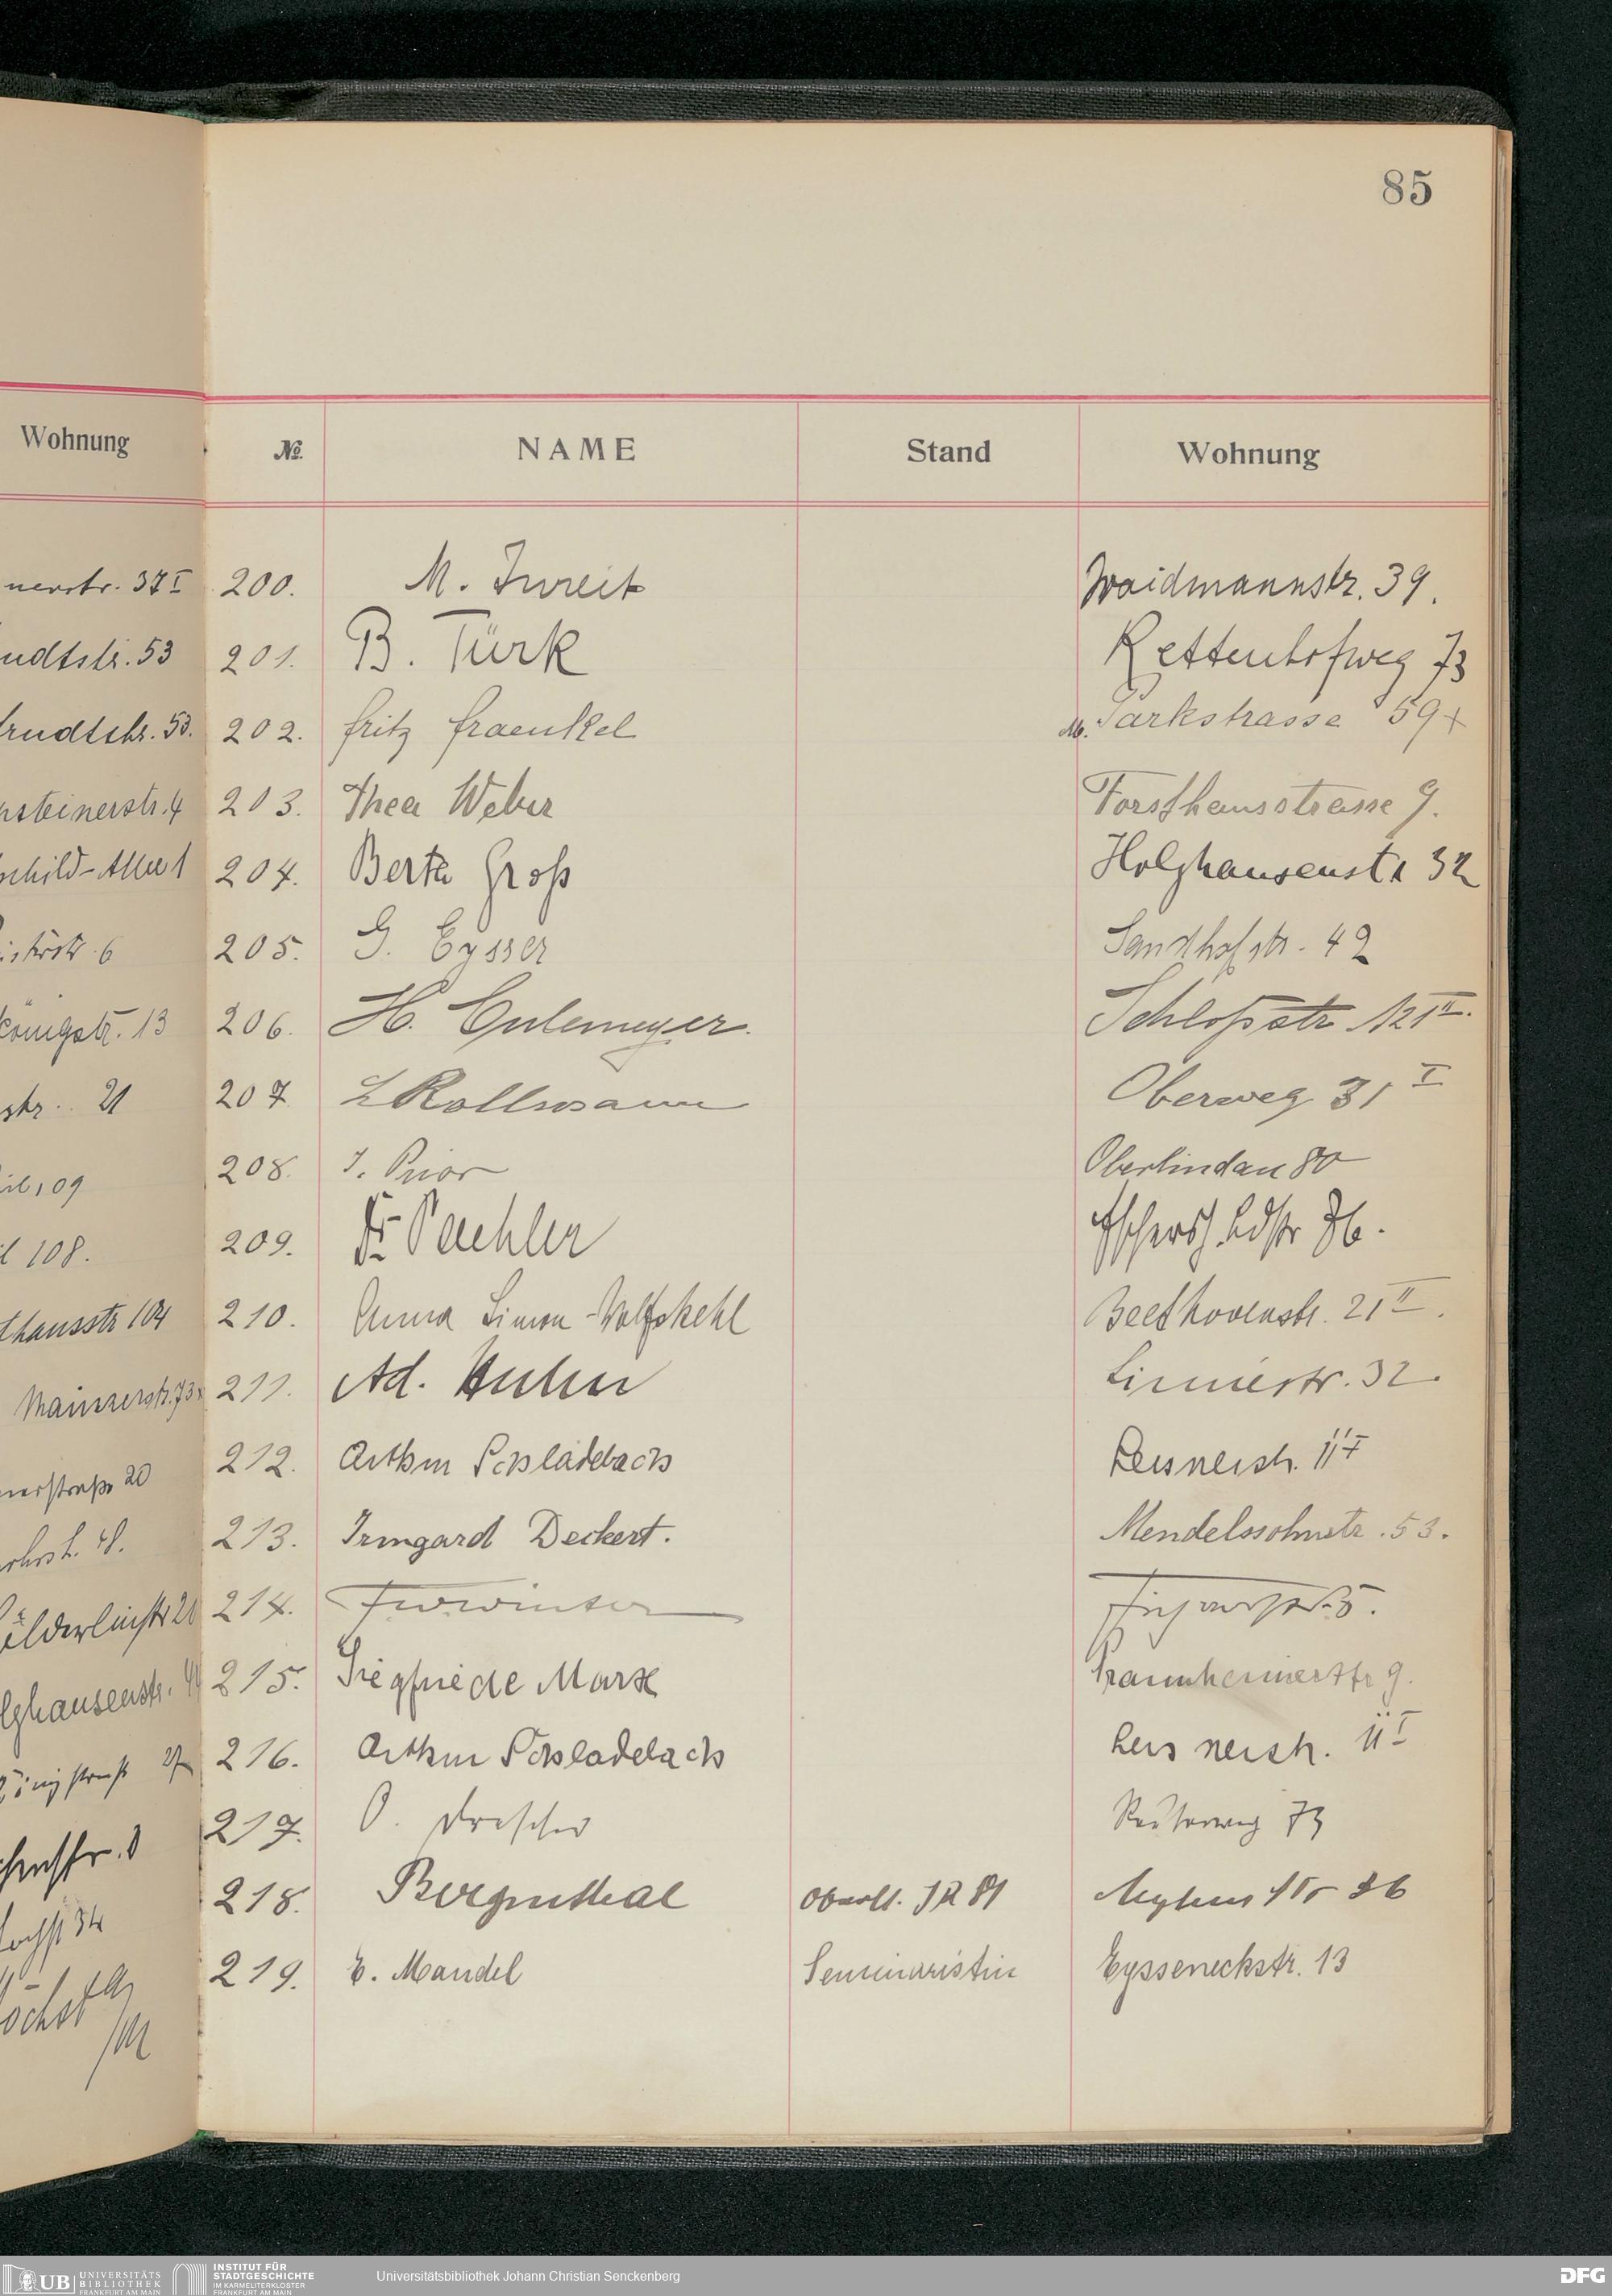 85
Wohnung
№ NAME Stand Wohnung
nerstr. 37 I
udtstr. 53
rudtstr. 53.
nsteinerstr. 4
schild-Allee 1
6
königstr. 13
str. 21
109
108.
thausstr 104
Mainzerstr. 73
nerstraße 20
ölderlinstr 20
lzhausenstr.
34
200. M. Jureit Waidmannstr. 39.
201. B. Türk Kettenhofweg 73
202. Fritz Fraenkel Parkstrasse 59
203. Thea Weber Forsthausstrasse 9.
204. Berta Groß Holzhausenstr 32
205. G. Eysser Sandhofstr. 42
206. H. Culemeyer. Schloßstr 121 II.
207 L Rollmann Oberweg 31 I
208. J. Prior Oberlindau 80
209. Dr. Paehler Eschersh. Ldstr 76.
210. Anna Simon-Wolfskehl Beethovenstr. 21 II.
211. Ad. Linnéstr. 32.
212. Arthur Schladebach Lersnerstr. 11 I
213. Irmgard Deckert. Mendelssohnstr. 53.
214. 5.
215. Siegfriede Marx Praunheimerstr 9.
216. Arthur Schladebach Lersnerstr. 11 I
217. O. Drescher Reuterweg 73
218. Bergenthal Oberlt. IR 81
219. E. Mandel Seminaristin Eysseneckstr. 13
UB UNIVERSITÄTS
BIBLIOTHEK
FRANKFURT AM MAIN
INSTITUT FÜR
STADTGESCHICHTE
IM KARMELITERKLOSTER
FRANKFURT AM MAIN
Universitätsbibliothek Johann Christian Senckenberg
DFG